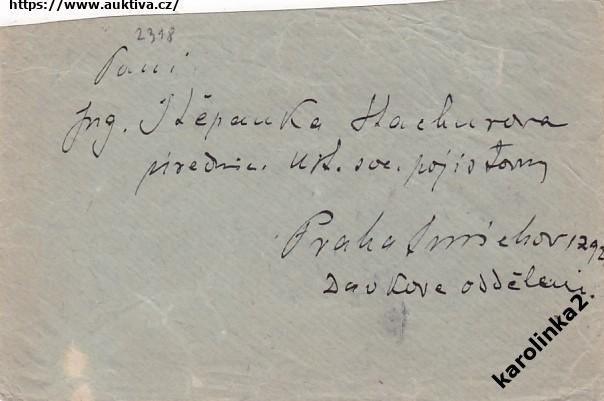 https://www.auktiva.cz/
2318
Paní
Ing. Štěpanka Stachurova
úřednic. úst. soc. pojišťovny
Praha Smíchov 1292
Davkove oddělení.
karolinka2.